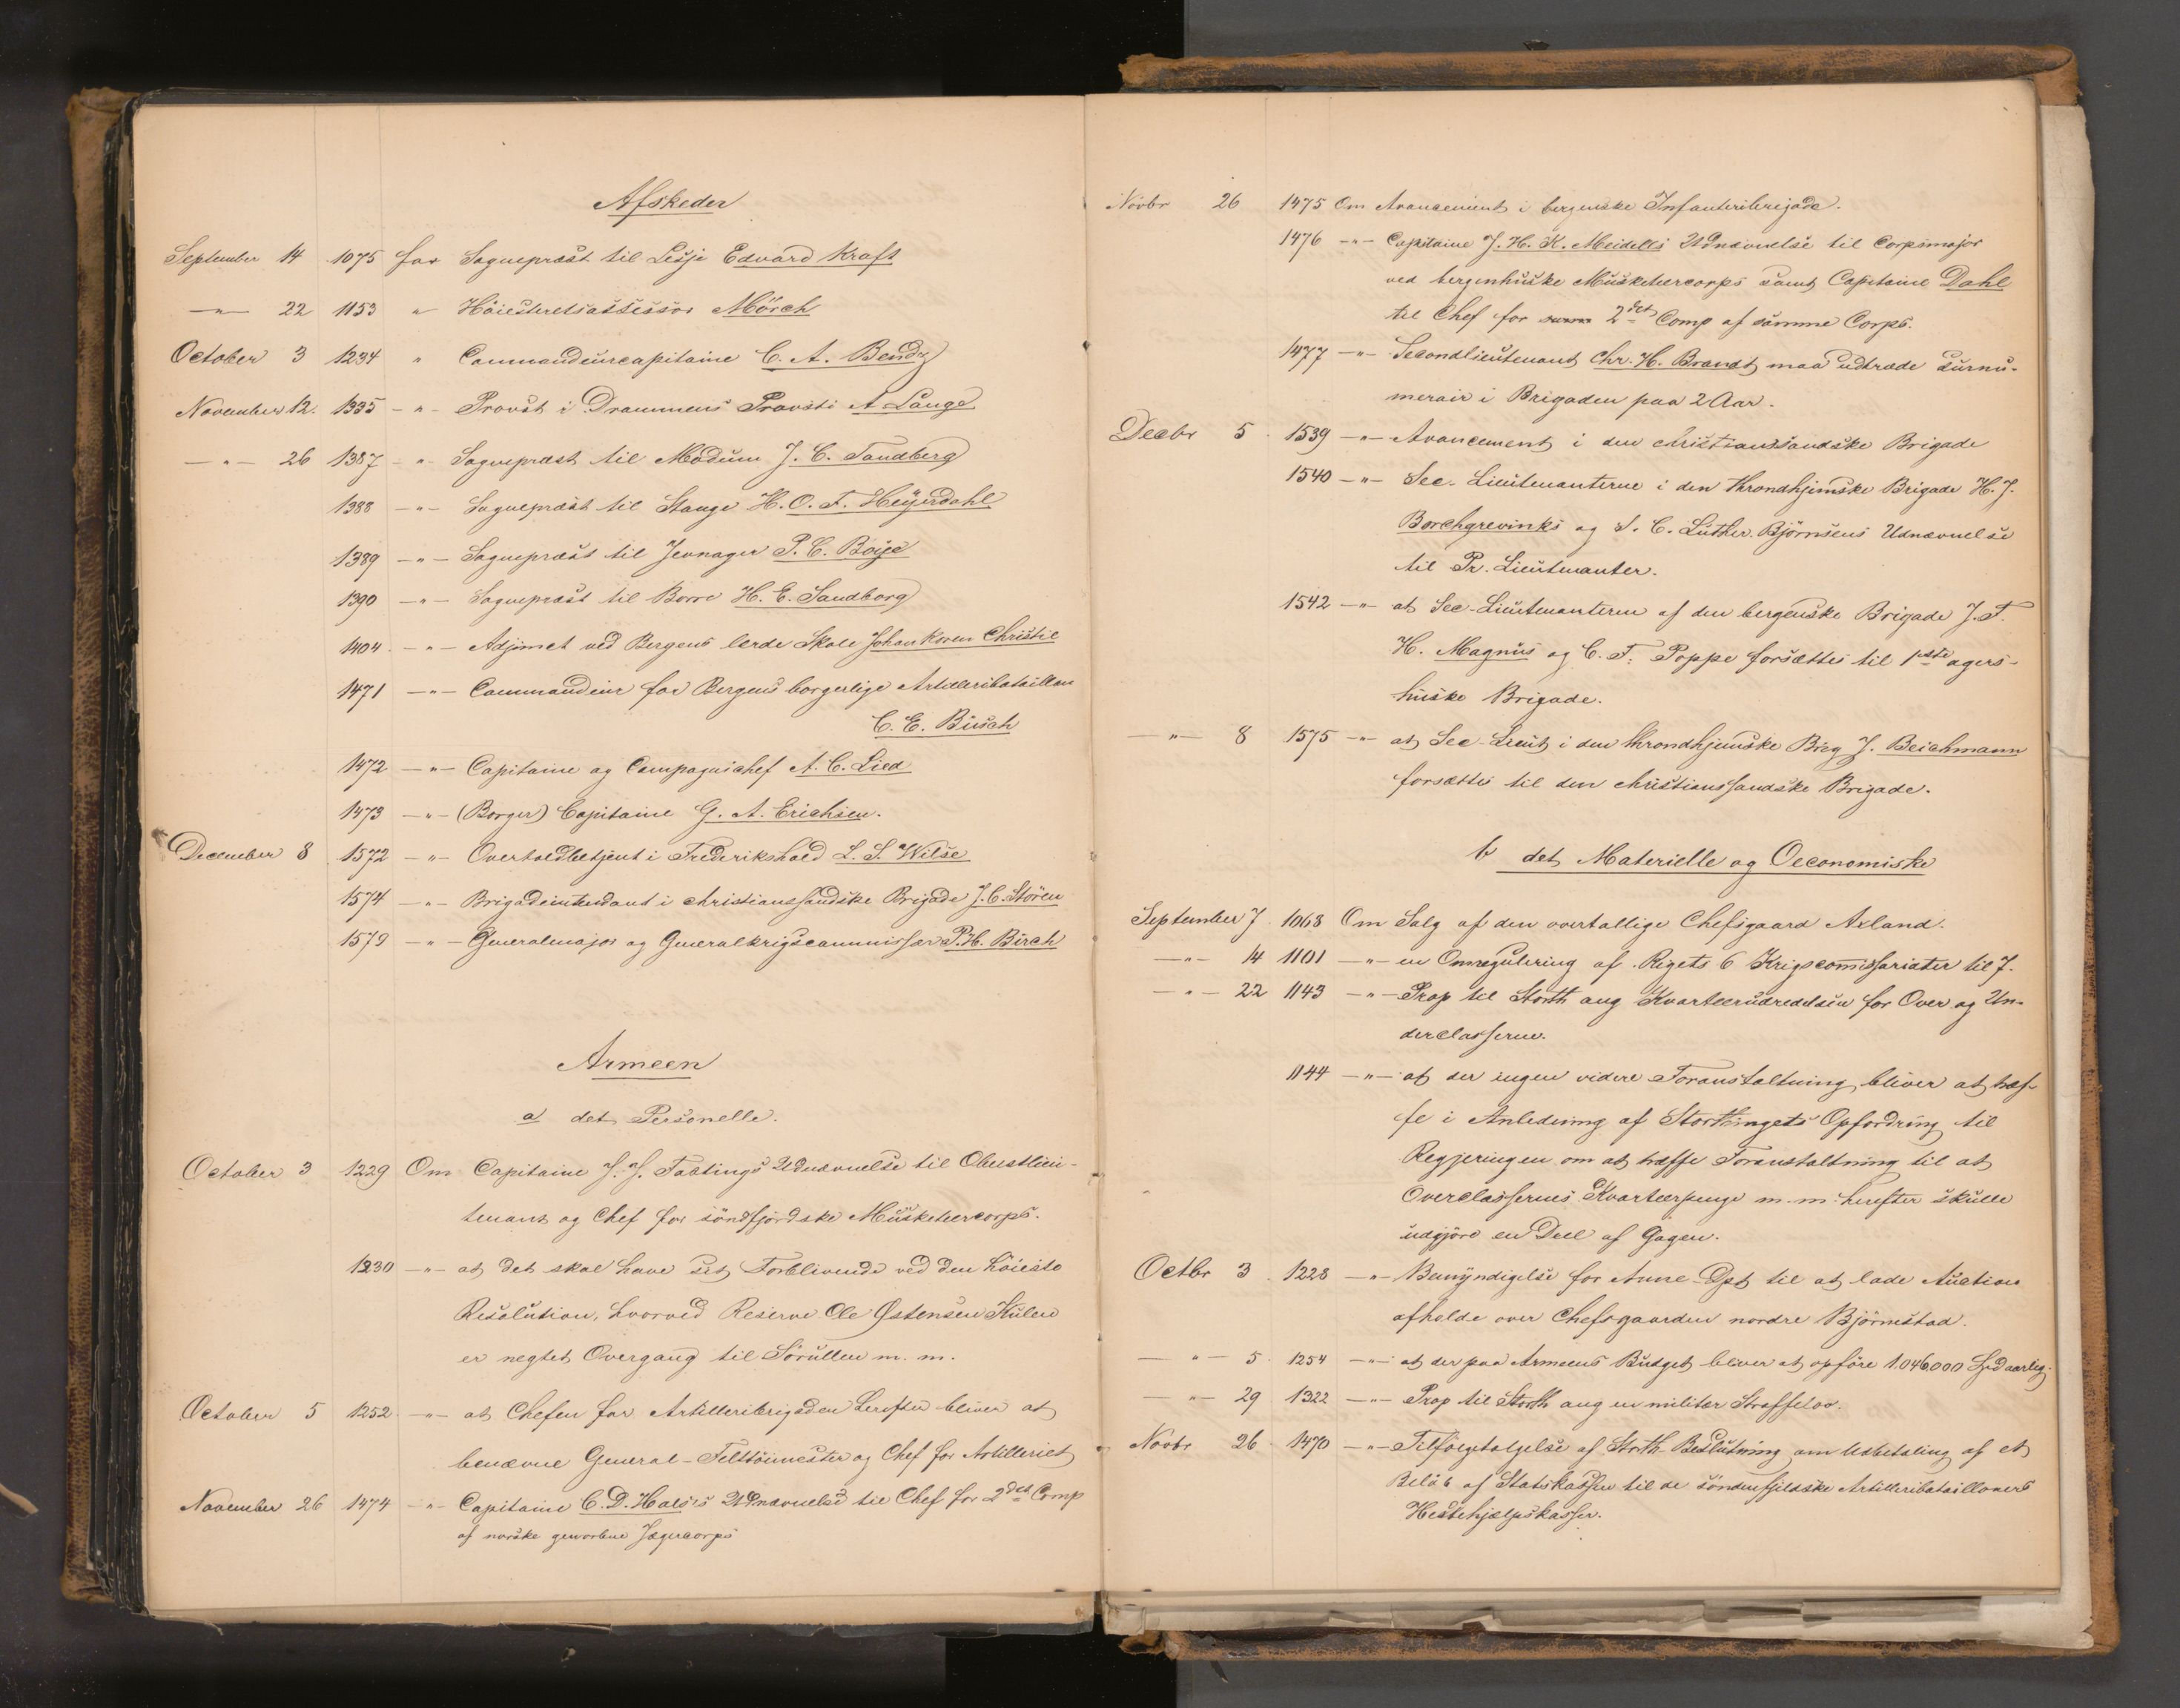 Afskeder
September 14 1075 for Sognepræst til Lesje Edvard Kraft
—"— 22 1153 " Höiesteretsassessor Mörch
October 3 1234 " Commandeurcapitaine C. A. Bendz
November 12. 1335 -"- Provst i Drammens Provsti A Lange
—"— 26 1387 -"- Sognepræst til Modum J. C. Sandberg
1388 —"— Sognepræst til Stange H. O. F. Heÿerdahl
1389 —"— Sognepræst til Jevnager P. C. Boije
1390 —"— Sognepræst til Borre H. E. Sandborg
1404 —"— Adjunct ved Bergens lærde Skole Johan Koren Christie
1471 —"— Commandeur for Bergens borgerlige Artilleribataillon
C. E. Busch
1472 —"— Capitaine og Compagnichef A. C. Lied
1473 —"— (Borger) Capitaine G. A. Erichsen.
December 8 1572 —"— Overtoldbetjent i Frederikshald L. S. Wilse
1574 —"— Brigadeintendant i christianssandske Brigade J. C. Stören
1579 —"— Generalmajor og Generalkrigscommissær P. H. Birch
Armeen
a det Personelle.
October 3 1229 Om Capitaine J. J. Fastings Udnævnelse til Oberstlieu-
tenant og Chef for söndfjordske Musketeercorps.
1230 —"— at det skal have sit Forblivende ved den höieste
Resolution, hvorved Reserve Ole Østensen Kulen
er negtet Overgang til Sörullen m. m.
October 5 1252 —"— at Chefen for Artilleribrigaden herefter bliver at
benævne General-Felttöimester og Chef for Artilleriet
November 26 1474 —"— Capitaine C. D. Halses Udnævnelse til Chef for 2det Comp
af norske geworbne Jægercorps
Novbr 26 1475 Om Avancement i bergenske Infanteribrigade.
1476 —"— Capitaine J. H. K. Meidells Udnævnelse til Corpsmajor
ved bergenhuske Musketeercorps samt Capitaine Dahl
til Chef for 2det Comp af samme Corps.
1477 —"— Secondlieutenant Chr. H. Brandt maa udtræde surnu-
merair i Brigaden paa 2 Aar.
Decbr 5 1539 —"— Avancement i den christianssandske Brigade
1540 —"— Sec. Lieutenanterne i den throndhjemske Brigade H. J.
Borchgrevinks og S. C. Luther Björnsens Udnævnelse
til Pr. Lieutenanter.
1542 —"— at Sec-Lieutenanterne af den bergenske Brigade J. F.
H. Magnus og C. F. Poppe forsættes til 1ste agers-
huske Brigade.
—"— 8 1575 —"— at Sec-Lieut i den throndhjemske Brig J. Beichmann
forsættes til den christianssandske Brigade.
b det Materielle og Oeconomiske
September 7 1068 Om Salg af den overtallige Chefsgaard Axland.
—"— 14 1101 —"— en Omregulering af Rigets 6 Krigscomissariater til 7.
—"— 22 1143 —"— Prop til Storth ang Kvarteerudredelsen for Over og Un-
derclasserne.
1144 —"— at der ingen videre Foranstaltning bliver at træf-
fe i Anledning af Storthingets Opfordring til
Regjeringen om at træffe Foranstaltning til at
Overclassernes Kvarteerpenge m. m. herefter skulle
udgjöre en Deel af Gagen.
Octbr 3 1228 —"— Bemÿndigelse for Arme-Dpt til at lade Auction
afholde over Chefsgaarden nordre Björnstad.
—"— 5 1254 —"— at der paa Armeens Budget bliver at opföre 1.046.000 Spd aarlig.
—"— 29 1322 —"— Prop til Storth ang en militær Straffelov.
Novbr 26 1470 —"— Tilfölgetagelse af Storth Beslutning om Udbetaling af et
Belöb af Statskassen til de söndenfjeldske Artilleribatailloners
Hestehjælpskasser.